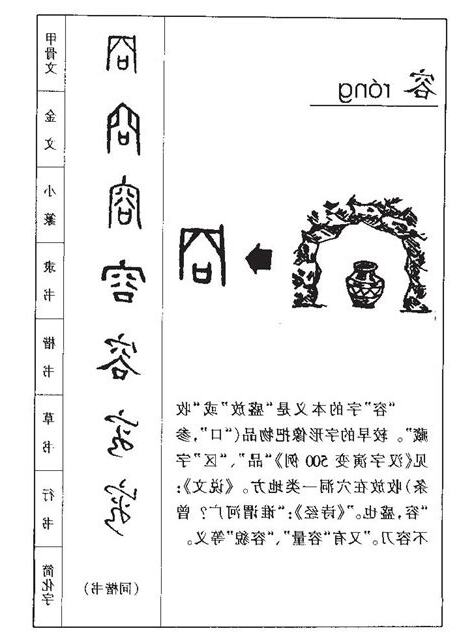 容 róng
“容”字的本义是“盛放”或“收
藏”。较早的字形像把物品(“口”,参
见《汉字演变 500 例》“品”、“区”字
条)收放在穴洞一类地方。《说文》:
“容,盛也。”《诗经》:“谁谓河广?曾
不容刀。”又有“容量”、“容貌”等义。
甲骨文
金文
小篆
隶书 容
楷书 容
草书 容
行书 容
简化字 (同楷书)